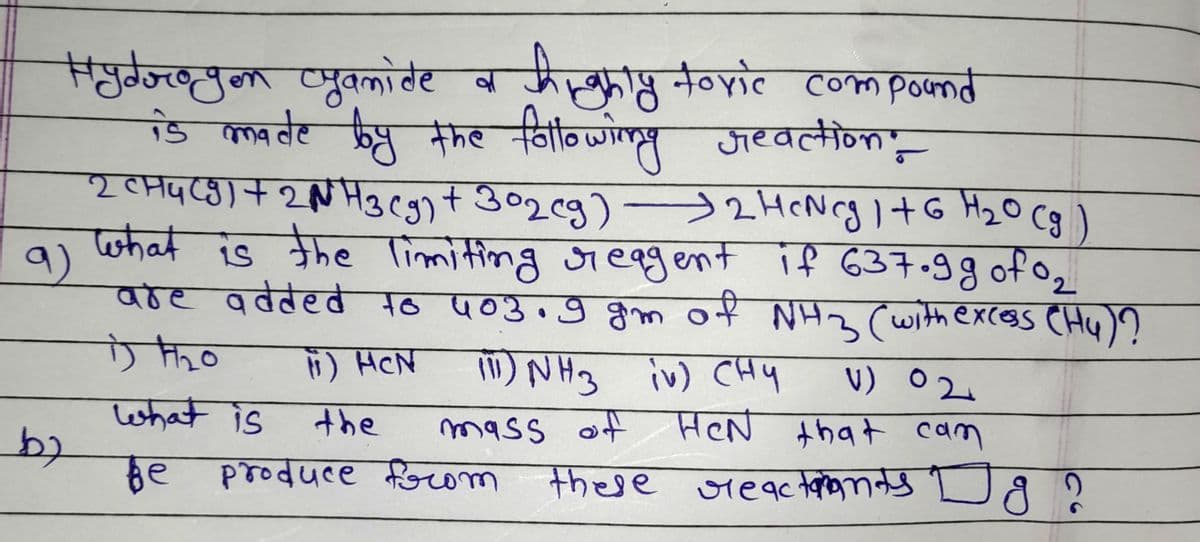 Hydrogen cyanide a highly toxic compound
is made by the following reaction:-
2CH4(g) + 2NH3(g) + 3O2(g) → 2HCN(g) + 6 H2O(g)
a) What is the limiting reagent if 637.9g of O2
are added to 403.9 gm of NH3 (with excess CH4)?
i) H2O ii) HCN iii) NH3 iv) CH4 v) O2
b) What is the mass of HCN that can
be produce from these reactants □ g ?